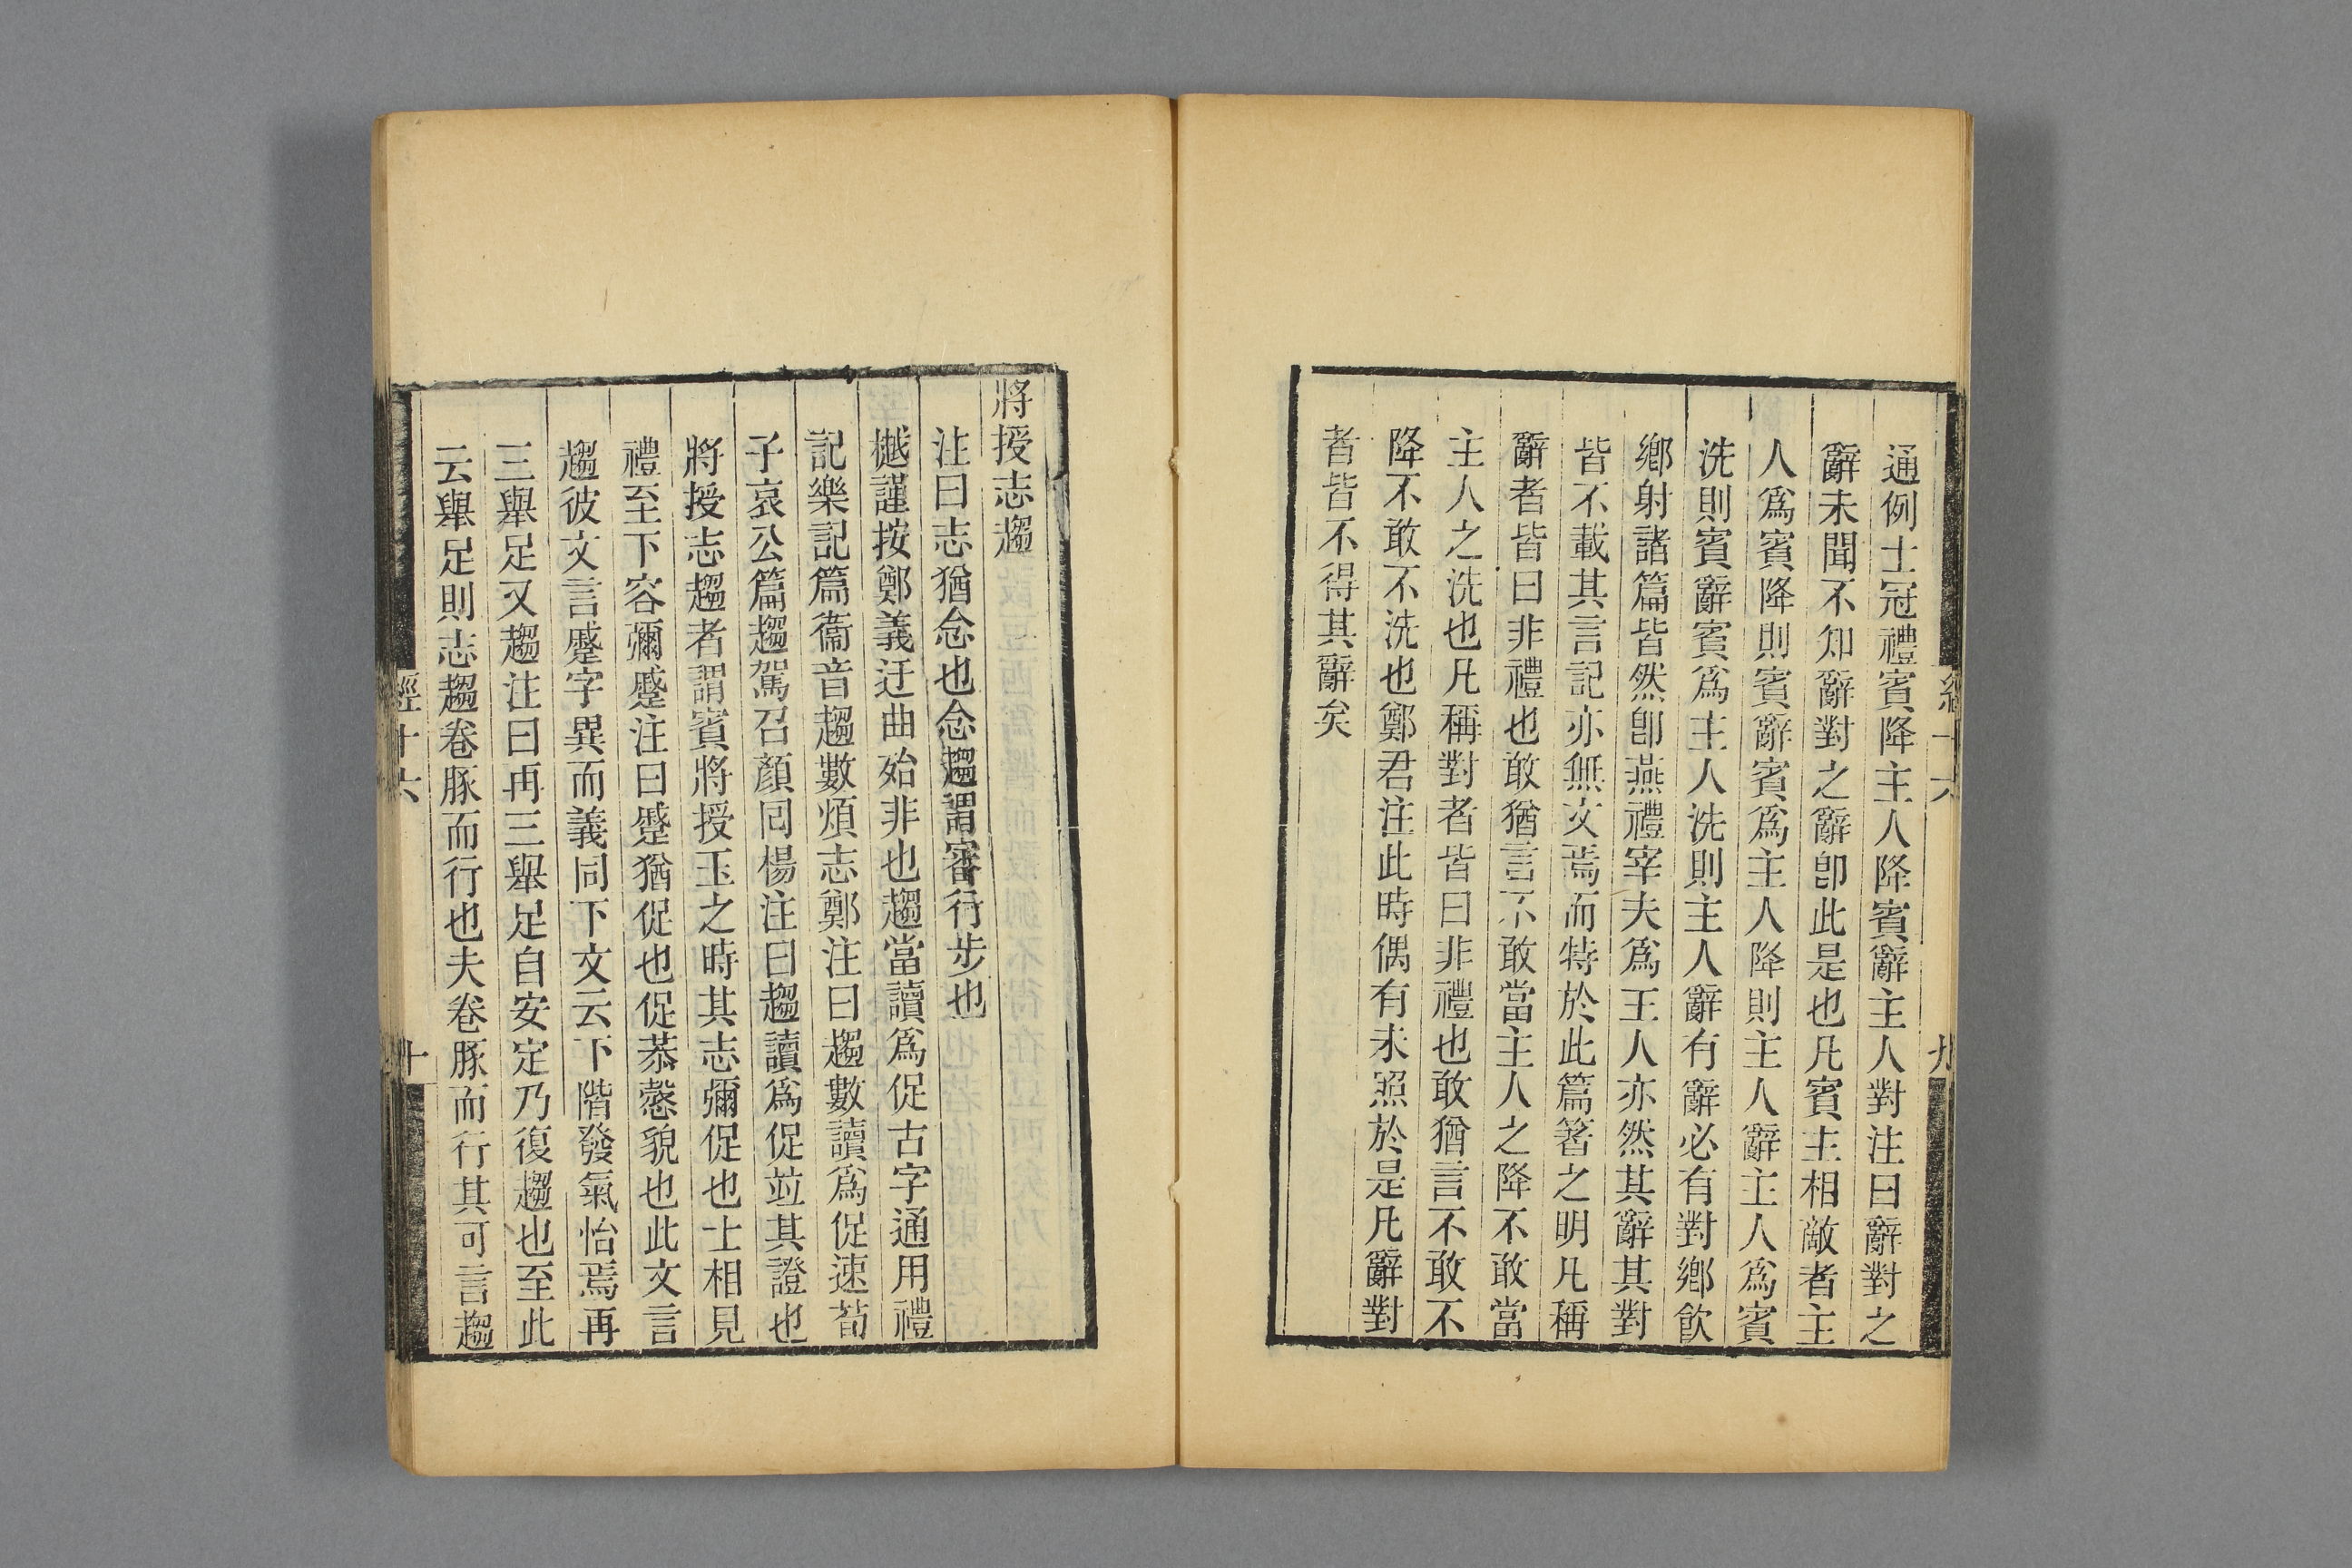 通例士冠禮賓降主人降賓辭主人對注曰辭對之
辭未聞不知辭對之辭卽此是也凡賓主相敵者主
人爲賓降則賓辭賓爲主人降則主人辭主人爲賓
洗則賓辭賓爲主人洗則主人辭有辭必有對鄉飮
鄉射諸篇皆然卽燕禮宰夫爲主人亦然其辭其對
皆不載其言記亦無文焉而特於此篇箸之明凡稱
辭者皆曰非禮也敢猶言不敢當主人之降不敢當
主人之洗也凡稱對者皆曰非禮也敢猶言不敢不
降不敢不洗也鄭君注此時偶有未照於是凡辭對
者皆不得其辭矣
經十六
九
將授志趨
注曰志猶念也念趨謂審行步也
樾謹按鄭義迂曲殆非也趨當讀爲促古字通用禮
記樂記篇衞音趨數煩志鄭注曰趨數讀爲促速荀
子哀公篇趨駕召顏同楊注曰趨讀爲促竝其證也
將授志趨者謂賓將授玉之時其志彌促也士相見
禮至下容彌蹙注曰蹙猶促也促恭慤貌也此文言
趨彼文言蹙字異而義同下文云下階發氣怡焉再
三舉足又趨注曰再三舉足自安定乃復趨也至此
云舉足則志趨卷豚而行也夫卷豚而行其可言趨
經十六
十